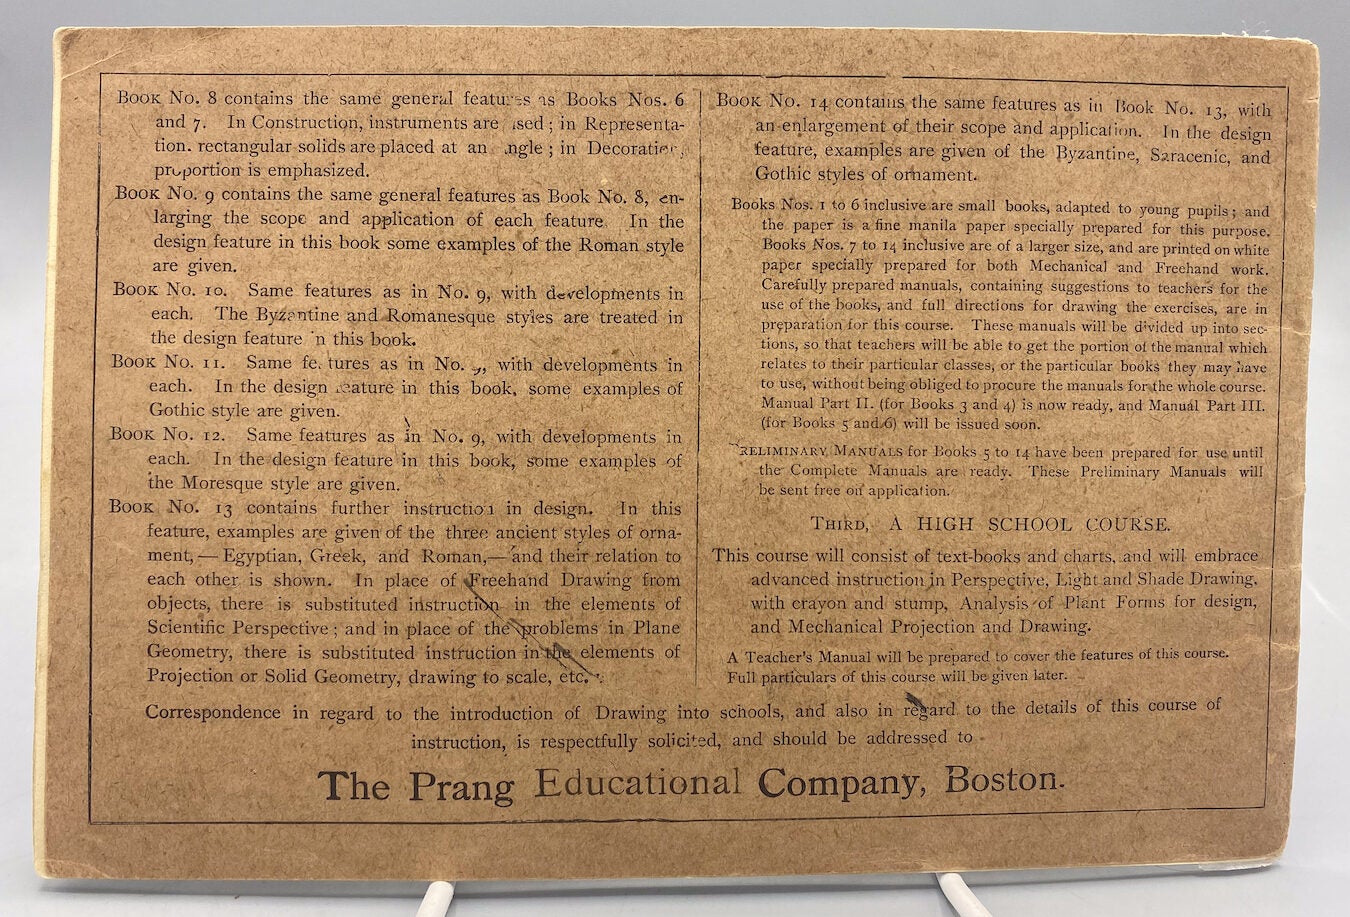 Book No. 8 contains the same general features as Books Nos. 6
and 7. In Construction, instruments are used; in Representa-
tion. rectangular solids are placed at an angle; in Decoration,
proportion is emphasized.
Book No. 9 contains the same general features as Book No. 8, en-
larging the scope and application of each feature. In the
design feature in this book some examples of the Roman style
are given.
Book No. 10. Same features as in No. 9, with developments in
each. The Byzantine and Romanesque styles are treated in
the design feature in this book.
Book No. 11. Same features as in No. 9, with developments in
each. In the design feature in this book, some examples of
Gothic style are given.
Book No. 12. Same features as in No. 9, with developments in
each. In the design feature in this book, some examples of
the Moresque style are given.
Book No. 13 contains further instruction in design. In this
feature, examples are given of the three ancient styles of orna-
ment, — Egyptian, Greek, and Roman, — and their relation to
each other is shown. In place of Freehand Drawing from
objects, there is substituted instruction in the elements of
Scientific Perspective; and in place of the problems in Plane
Geometry, there is substituted instruction in the elements of
Projection or Solid Geometry, drawing to scale, etc.
Book No. 14 contains the same features as in Book No. 13, with
an enlargement of their scope and application. In the design
feature, examples are given of the Byzantine, Saracenic, and
Gothic styles of ornament.
Books Nos. 1 to 6 inclusive are small books, adapted to young pupils; and
the paper is a fine manila paper specially prepared for this purpose.
Books Nos. 7 to 14 inclusive are of a larger size, and are printed on white
paper specially prepared for both Mechanical and Freehand work.
Carefully prepared manuals, containing suggestions to teachers for the
use of the books, and full directions for drawing the exercises, are in
preparation for this course. These manuals will be divided up into sec-
tions, so that teachers will be able to get the portion of the manual which
relates to their particular classes, or the particular books they may have
to use, without being obliged to procure the manuals for the whole course.
Manual Part II. (for Books 3 and 4) is now ready, and Manual Part III.
(for Books 5 and 6) will be issued soon.
Preliminary Manuals for Books 5 to 14 have been prepared for use until
the Complete Manuals are ready. These Preliminary Manuals will
be sent free on application.
Third, A HIGH SCHOOL COURSE.
This course will consist of text-books and charts, and will embrace
advanced instruction in Perspective, Light and Shade Drawing,
with crayon and stump, Analysis of Plant Forms for design,
and Mechanical Projection and Drawing.
A Teacher's Manual will be prepared to cover the features of this course.
Full particulars of this course will be given later.
Correspondence in regard to the introduction of Drawing into schools, and also in regard to the details of this course of
instruction, is respectfully solicited, and should be addressed to
The Prang Educational Company, Boston.